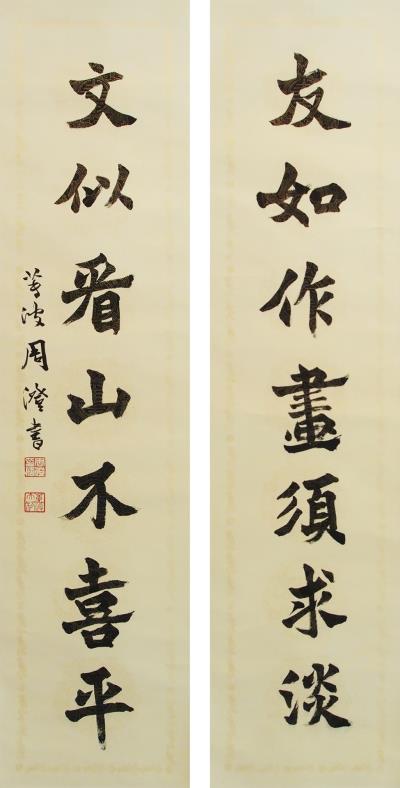 友如作畫須求淡
文似看山不喜平
蓴波周澄書